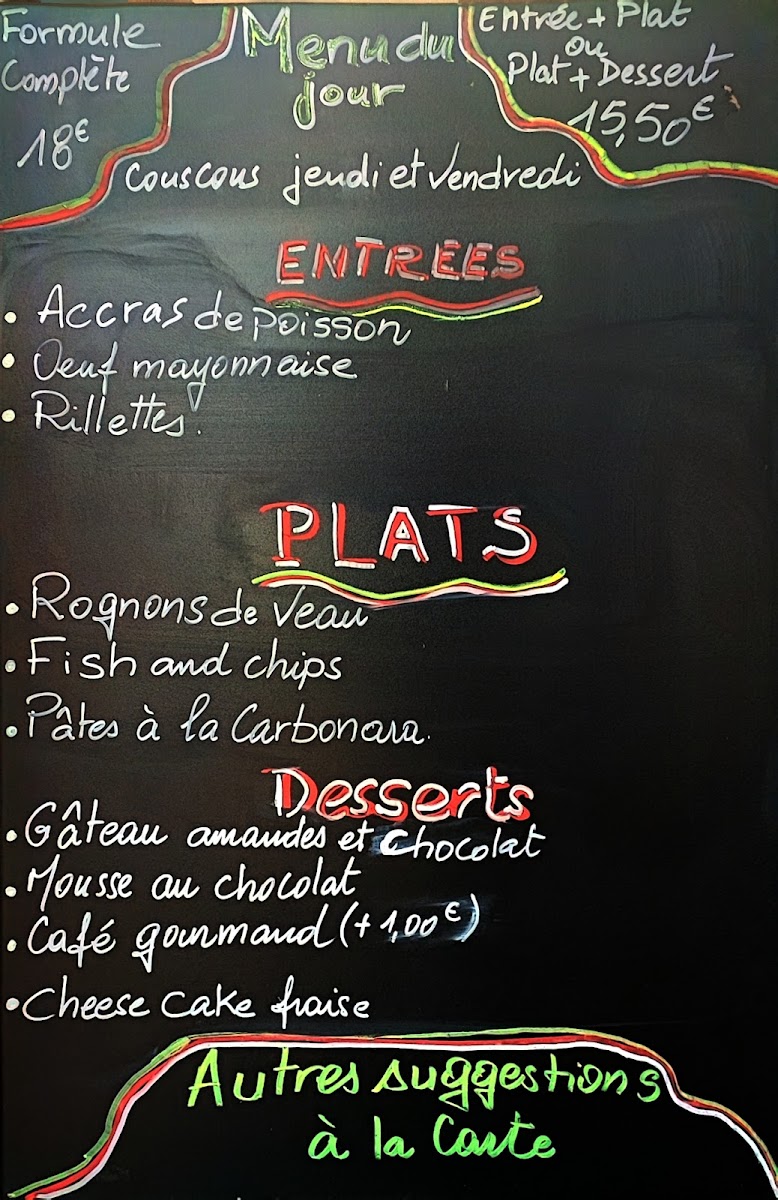 Formule
Complète
18€
Menu du
jour
Entrée + Plat
ou
Plat + Dessert
15,50€
Couscous jeudi et vendredi
ENTREES
• Accras de poisson
• Oeuf mayonnaise
• Rillettes.
PLATS
• Rognons de veau
• Fish and chips
• Pâtes à la Carbonara.
Desserts
• Gâteau amandes et chocolat
• Mousse au chocolat
• Café gourmand (+ 1,00€)
• Cheese cake fraise
Autres suggestions
à la Carte